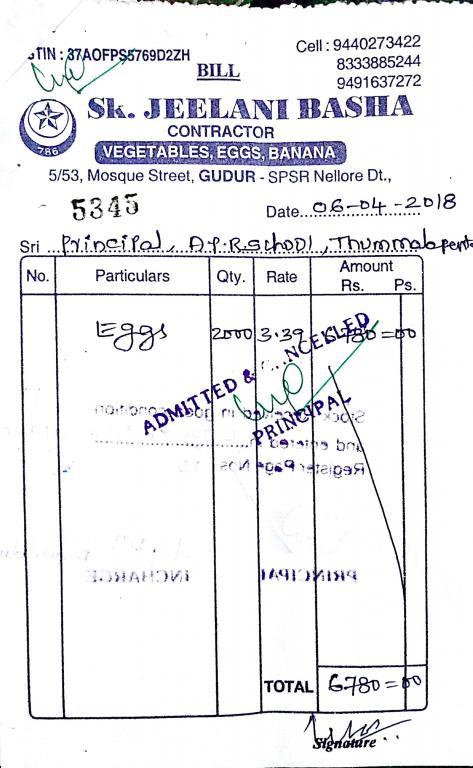 TIN : 37AOFPS5769D2ZH
BILL
Cell : 9440273422
8333885244
9491637272
786
Sk. JEELANI BASHA
CONTRACTOR
VEGETABLES, EGGS, BANANA
5/53, Mosque Street, GUDUR - SPSR Nellore Dt.,
5345
Date 06-04-2018
Sri Principal, A.P.R.School, Thummalapenta
No. Particulars Qty. Rate Amount
Rs. Ps.
Eggs 2000 3.39 6780=00
ADMITTED & NCELLED
PRINCIPAL
Stock in condition
and entered
Register Page Nos
PRINCIPAL INCHARGE
TOTAL 6780=00
Signature